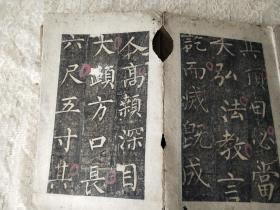 其頂曰必當
大弘法教言
訖而滅既成
人高顙深目
大頤方口長
六尺五寸其